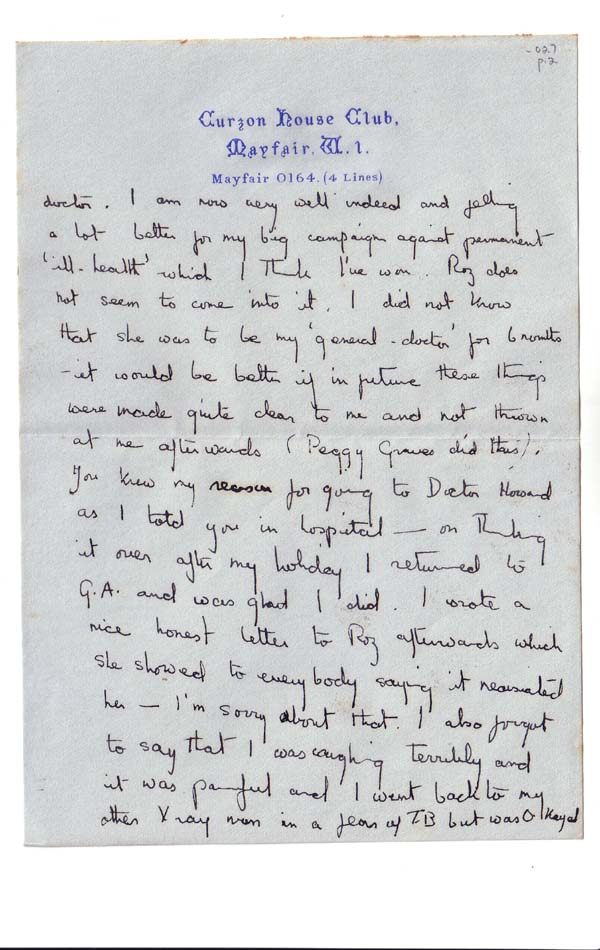 -027
p.2
Curzon House Club,
Mayfair, W.1.
Mayfair 0164. (4 Lines)
doctor. I am now very well indeed and feeling
a lot better for my big campaign against permanent
'ill-health' which I think I've won. Roz does
not seem to come into it. I did not know
that she was to be my 'general-doctor' for 6 months
- it would be better if in future these things
were made quite clear to me and not thrown
at me afterwards (Peggy Graves did this).
You knew my reason for going to Doctor Howard
as I told you in hospital — on thinking
it over after my holiday I returned to
G.A. and was glad I did. I wrote a
nice honest letter to Roz afterwards which
she showed to everybody saying it nauseated
her — I'm sorry about that. I also forgot
to say that I was coughing terribly and
it was painful and I went back to my
other X ray man in a fear of TB but was O'Kayed